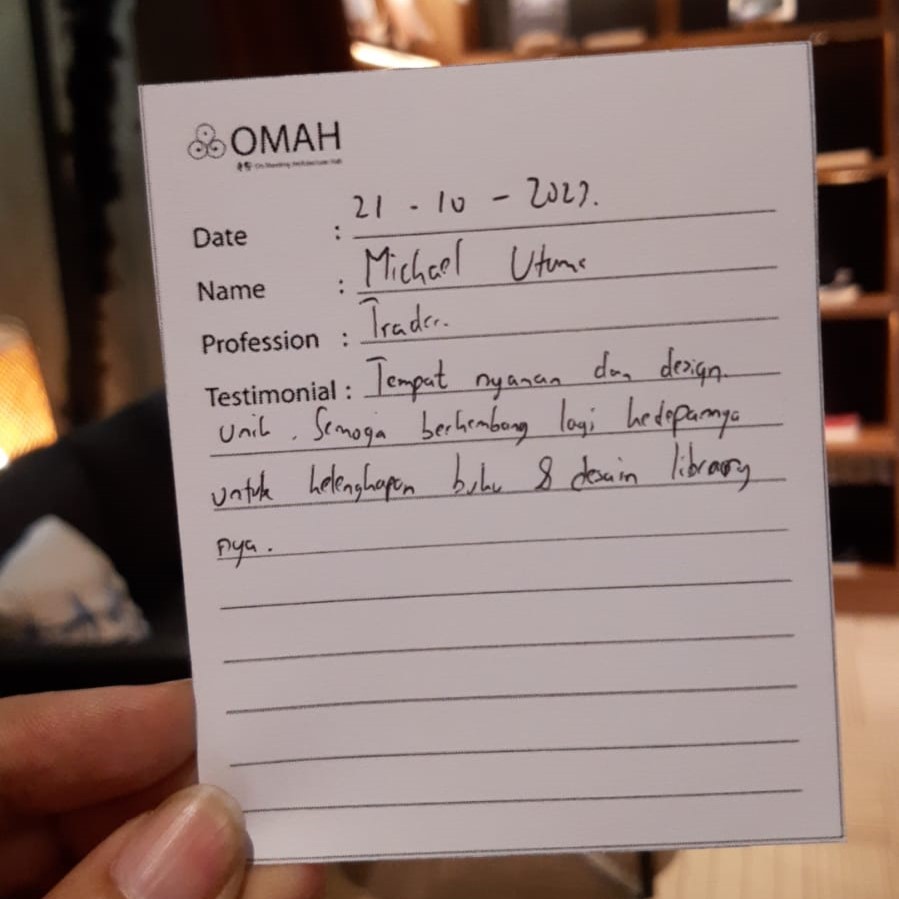 OMAH
Date : 21 - 10 - 2023.
Name : Michael Utomo
Profession : Trader.
Testimonial : Tempat nyaman dan design
unik. Semoga berkembang lagi kedepannya
untuk kelengkapan buku & desain library
nya.